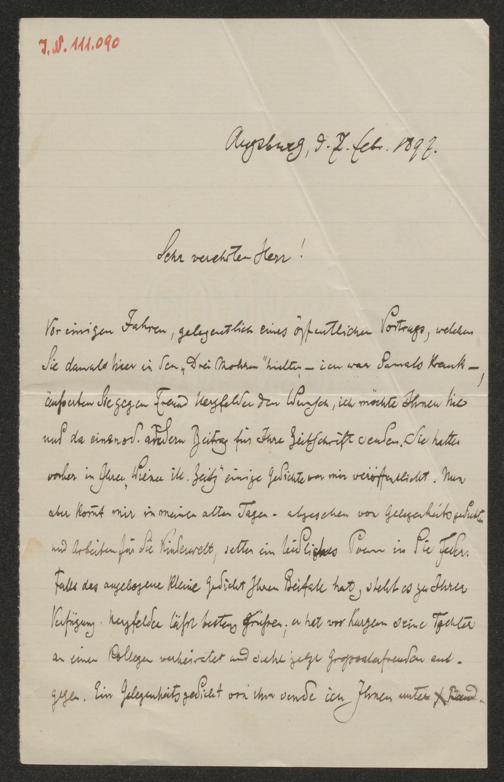 J.N. 111.090
Augsburg, d. 7. Febr. 1897.
Sehr verehrter Herr!
Vor einigen Jahren, gelegentlich eines öffentlichen Vortrags, welchen
Sie damals hier in den „Drei Mohren" hielten, – ich war damals krank –,
äußerten Sie gegen Freund Herzfelder den Wunsch, ich möchte Ihnen hie
und da einen od. andern Beitrag für Ihre Zeitschrift senden. Sie hatten
vorher in Ihrer „Wiener ill. Zeitg" einige Gedichte von mir veröffentlicht. Nun
aber kommt mir in meinen alten Tagen – abgesehen von Gelegenheitsgedichten
und Arbeiten für die Kinderwelt, selten ein leidliches Poem in die Feder.
Falls das angebogene kleine Gedicht Ihren Beifall hat, steht es zu Ihrer
Verfügung. Herzfelder läßt bestens grüßen; er hat vor Kurzem seine Tochter
an einen Kollegen verheiratet und sieht jetzt Großvaterfreuden ent-
gegen. Ein Gelegenheitsgedicht von ihm sende ich Ihnen unter X Band.